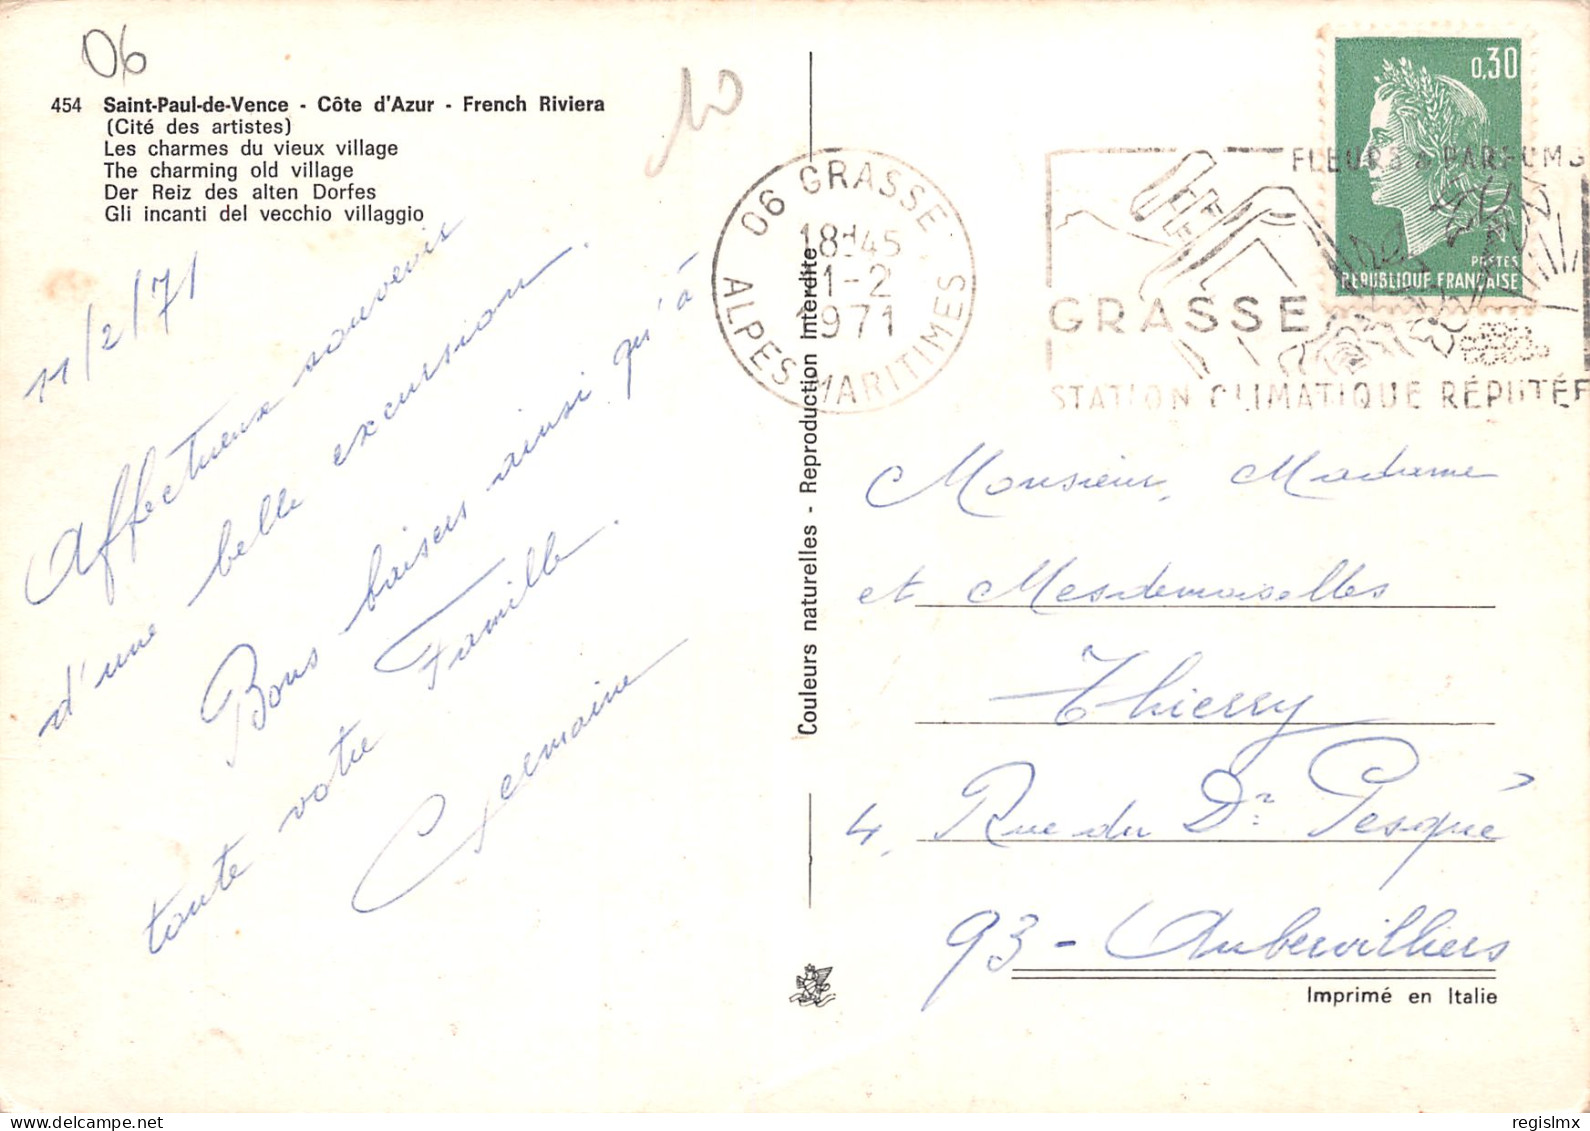 06
10
454 Saint-Paul-de-Vence - Côte d'Azur - French Riviera
(Cité des artistes)
Les charmes du vieux village
The charming old village
Der Reiz des alten Dorfes
Gli incanti del vecchio villaggio
11/2/71
Affectueux souvenir
d'une belle excursion.
Bons baisers ainsi qu'à
toute votre Famille.
Germaine
Couleurs naturelles - Reproduction Interdite
06 GRASSE
18H45
11-2
1971
ALPES MARITIMES
FLEURS & PARFUMS
GRASSE
STATION CLIMATIQUE RÉPUTÉE
0,30
POSTES
REPUBLIQUE FRANÇAISE
Monsieur, Madame
et Mesdemoiselles
Thierry
4, Rue du Dr Pesqué
93 - Aubervilliers
Imprimé en Italie
delcampe.net
regislmx